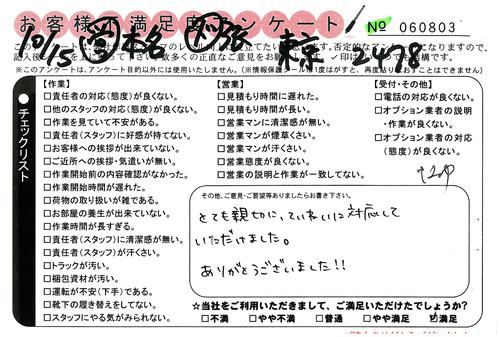 お客様満足度アンケート
No 060803
10/15
東京 2478
✓印は
(※このアンケートは、アンケート目的以外には使用いたしません。)(※情報保護シールは1度はがすと、再度貼りなおすことはできません)
チェックリスト
【作業】
□責任者の対応(態度)が良くない。
□他のスタッフの対応(態度)が良くない。
□作業を見ていて不安がある。
□責任者(スタッフ)に好感が持てない。
□お客様への挨拶が出来ていない。
□ご近所への挨拶・気遣いが無い。
□作業開始前の内容確認がなかった。
□作業開始時間が遅れた。
□荷物の取り扱いが雑である。
□お部屋の養生が出来ていない。
□作業時間が長すぎる。
□責任者(スタッフ)に清潔感が無い。
□責任者(スタッフ)が汗くさい。
□トラックが汚い。
□梱包資材が汚い。
□運転が不安(下手)である。
□靴下の履き替えをしてない。
□スタッフにやる気がみられない。
【営業】
□見積もり時間に遅れた。
□見積もり時間が長い。
□営業マンに清潔感が無い。
□営業マンが煙草くさい。
□営業マンが汗くさい。
□営業態度が良くない。
□営業の説明と作業が一致してない。
【受付・その他】
□電話の対応が良くない。
□オプション業者の説明
・作業が良くない。
□オプション業者の対応
(態度)が良くない。
その他、ご意見・ご要望等ありましたらお書き下さい。
とても親切に、ていねいに対応して
いただけました。
ありがとうございました!!
☆当社をご利用いただきまして、ご満足いただけたでしょうか?
□不満 □やや不満 □普通 □やや満足 ☑満足